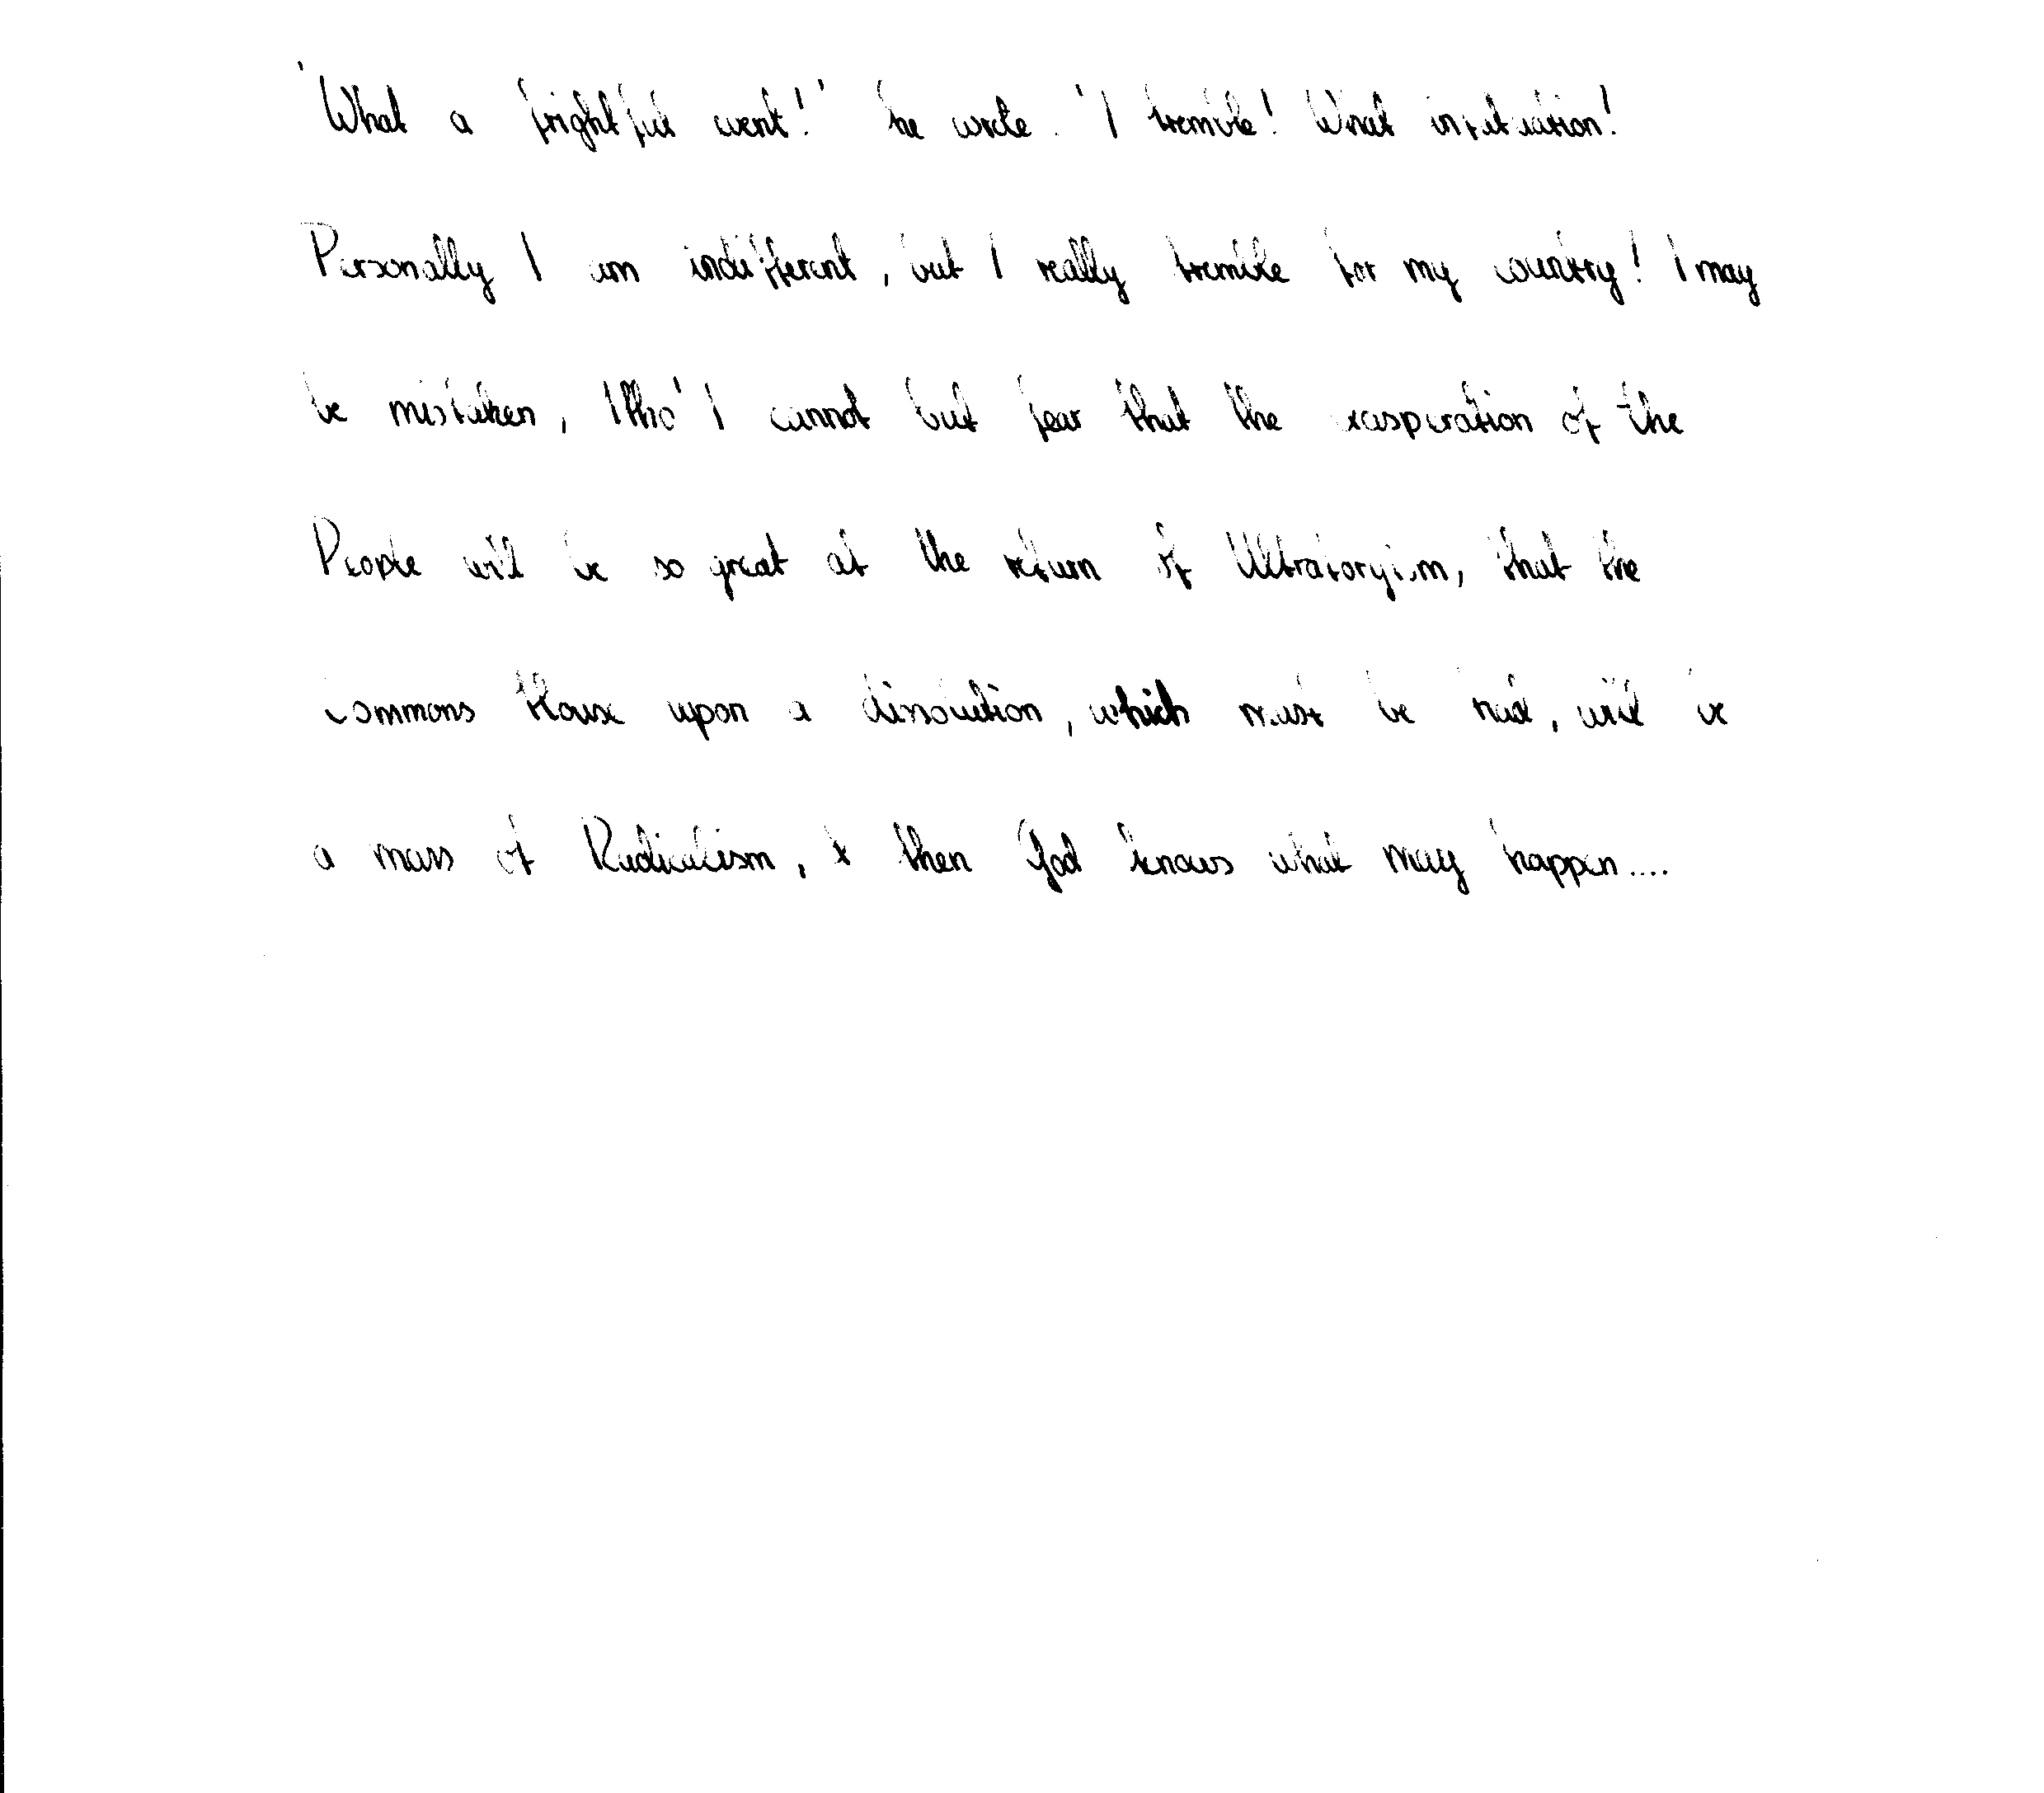 'What a frightful event!' he wrote. 'I tremble! What infatuation!
Personally I am indifferent, but I really tremble for my country! I may
be mistaken, tho' I cannot but fear that the exasperation of the
People will be so great at the return of Ultratoryism, that the
Commons House upon a dissolution, which must be had, will be
a mass of Radicalism, & then God knows what may happen....